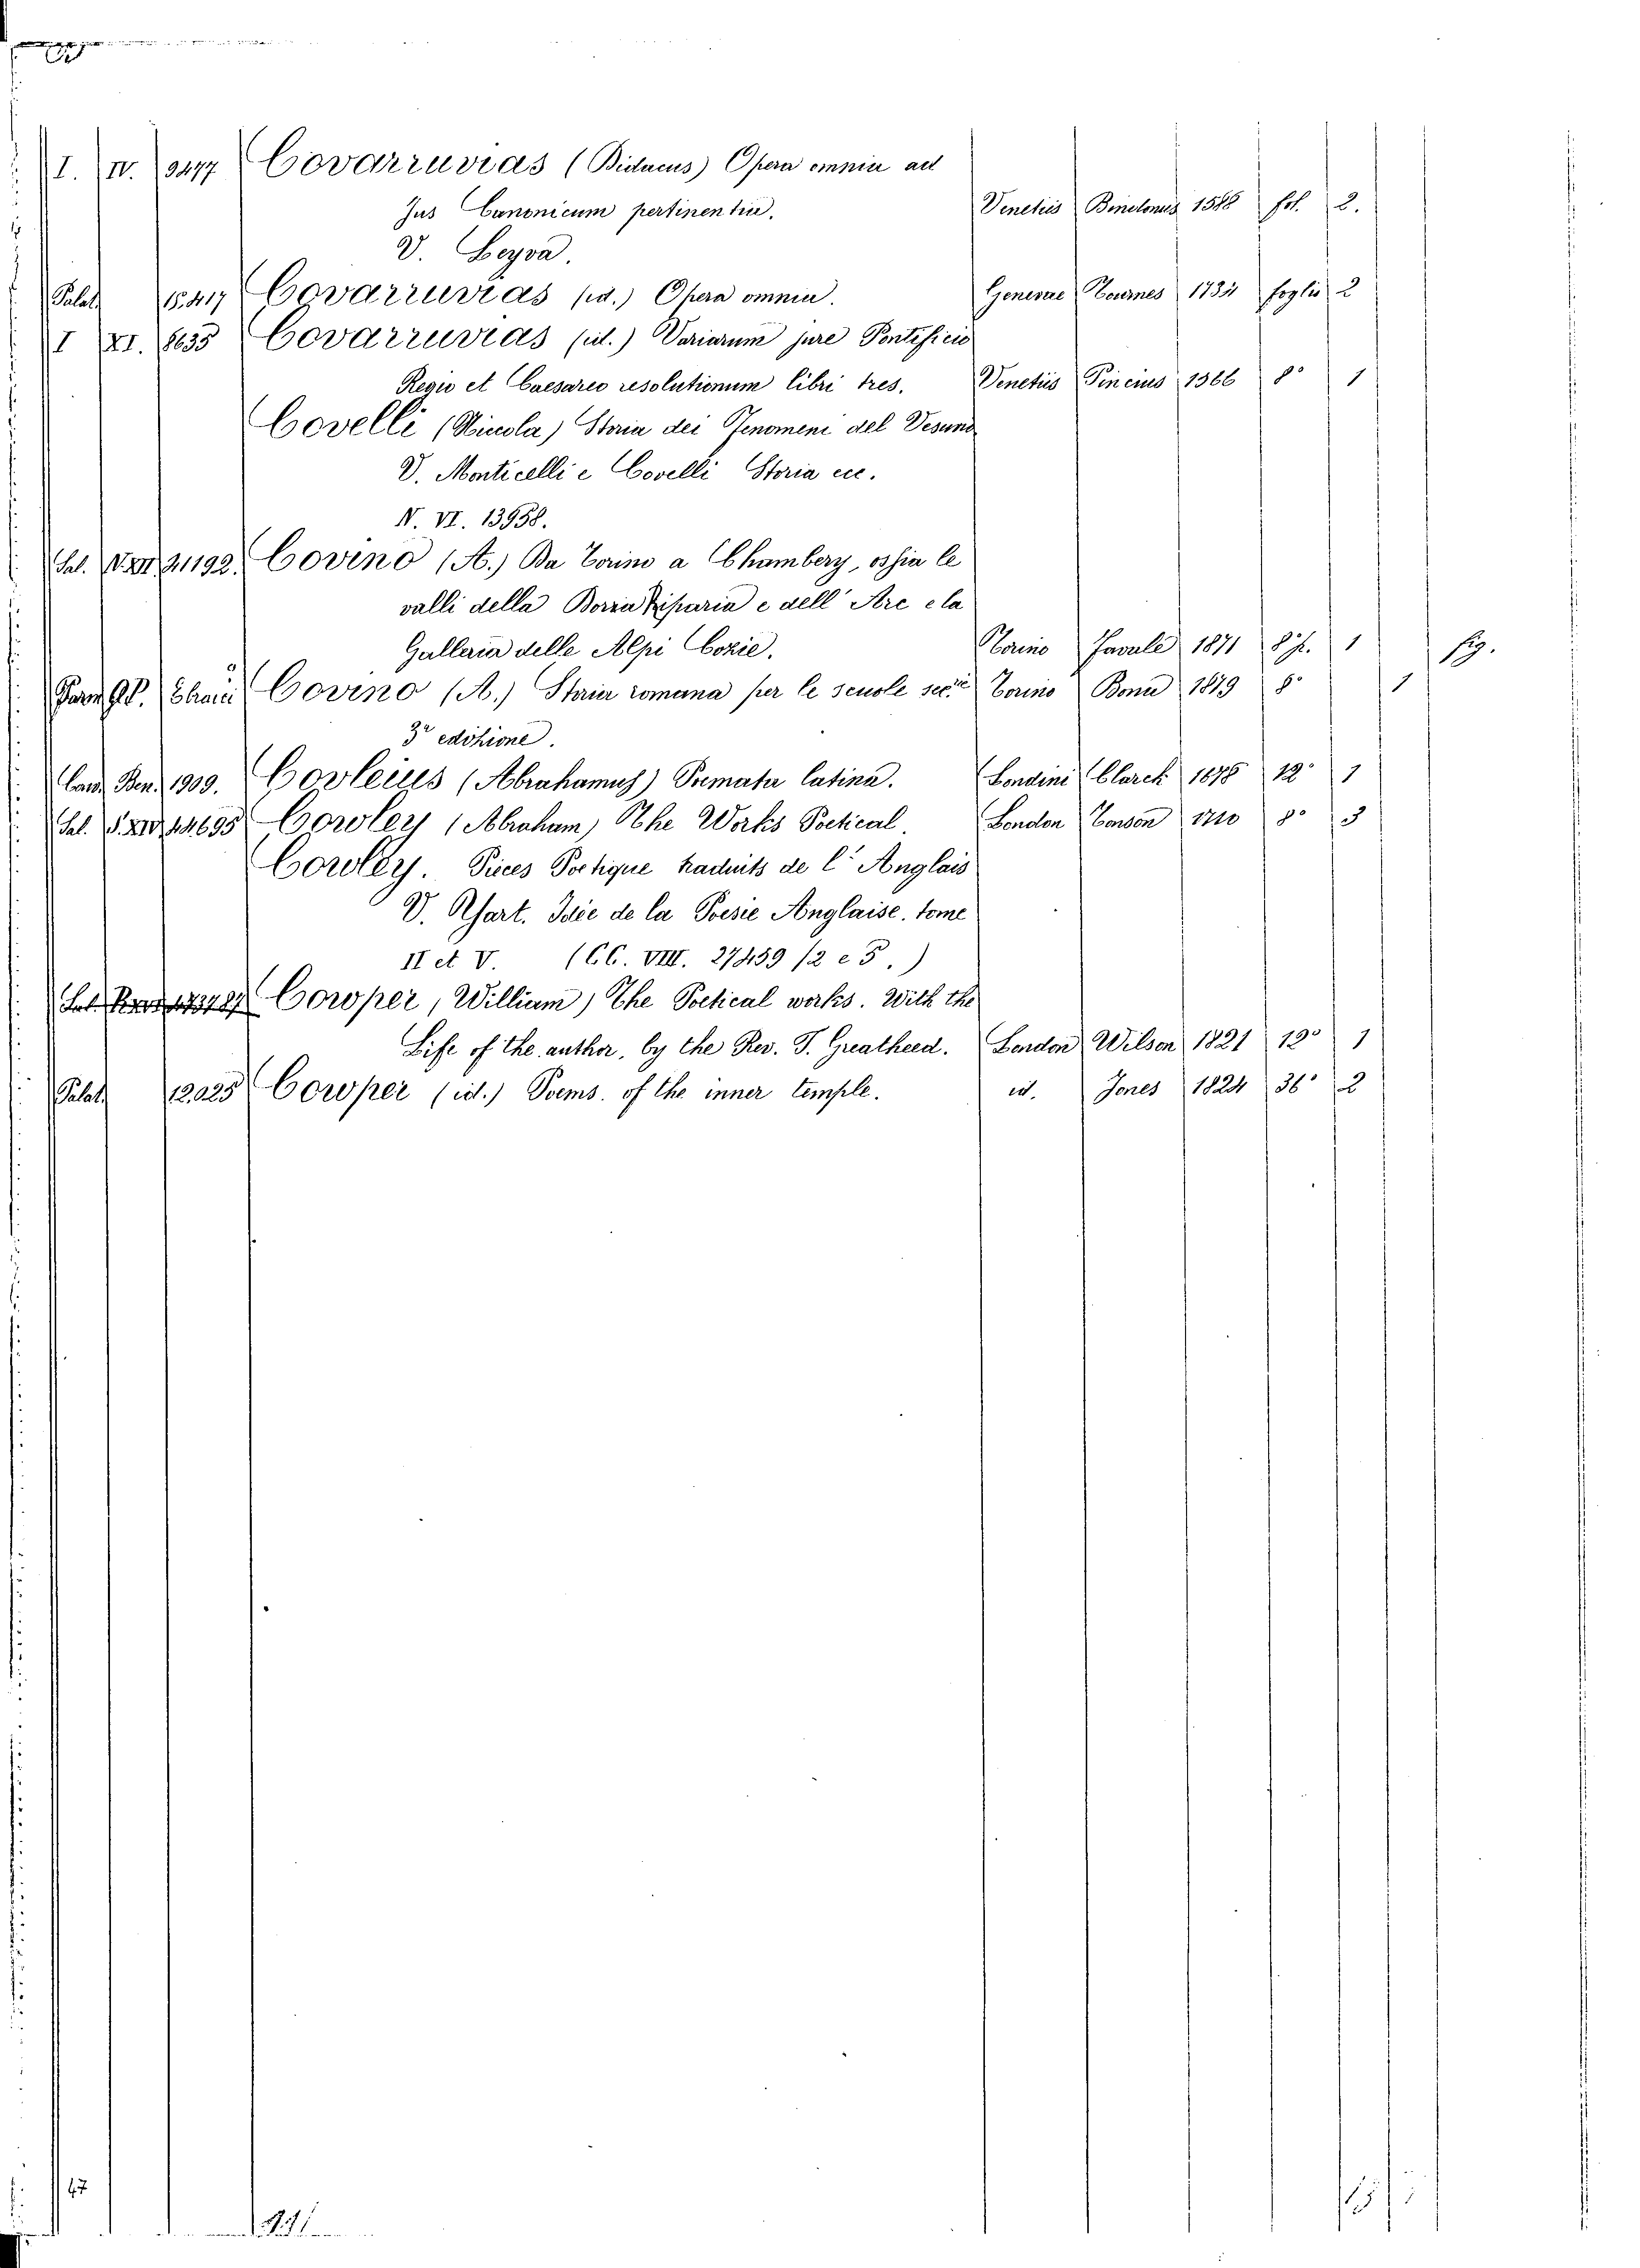 I. IV. 9477 Covarruvias (Didacus) Opera omnia ad
Jus Canonicum pertinentia. Venetiis 1588 fol. 2.
V. Leyva.
Palat. 15.417 Covarruvias (id.) Opera omnia. Genevae Tournes 1734 foglio 2
I XI. 8635 Covarruvias (id.) Variarum jure Pontificio
Regio et Caesareo resolutionum libri tres. Venetiis Pincius 1566 8° 1
Covelli (Nicola) Storia dei Fenomeni del Vesuvio
V. Monticelli e Covelli Storia ecc.
N. VI. 13958.
Sal. 21192. Covino (A.) Da Torino a Chambery, ossia le
valli della Dora Riparia e dell' Arc e la
Galleria delle Alpi Cozie. Torino Favale 1871 8° f. 1 fig.
Covino (A.) Storia romana per le scuole sec.rie Torino Bona 1879 8° 1
3a edizione.
1909. Covleius (Abrahamus) Poemata latina. Londini Clarck 1678 12° 1
Sal. 44695 Cowley (Abraham) The Works Poetical. London Tonson 1710 8° 3
Cowley. Pieces Poetique traduits de l'Anglais
V. Yart. Idée de la Poesie Anglaise. tome
II et V. (CC. VIII. 27459 /2 e 5.)
Sal. Cowper (William) The Poetical works. With the
Life of the author, by the Rev. T. Greatheed. London Wilson 1821 12° 1
Palat. 12025 Cowper (id.) Poems. of the inner temple. id. Jones 1824 36° 2
47
15